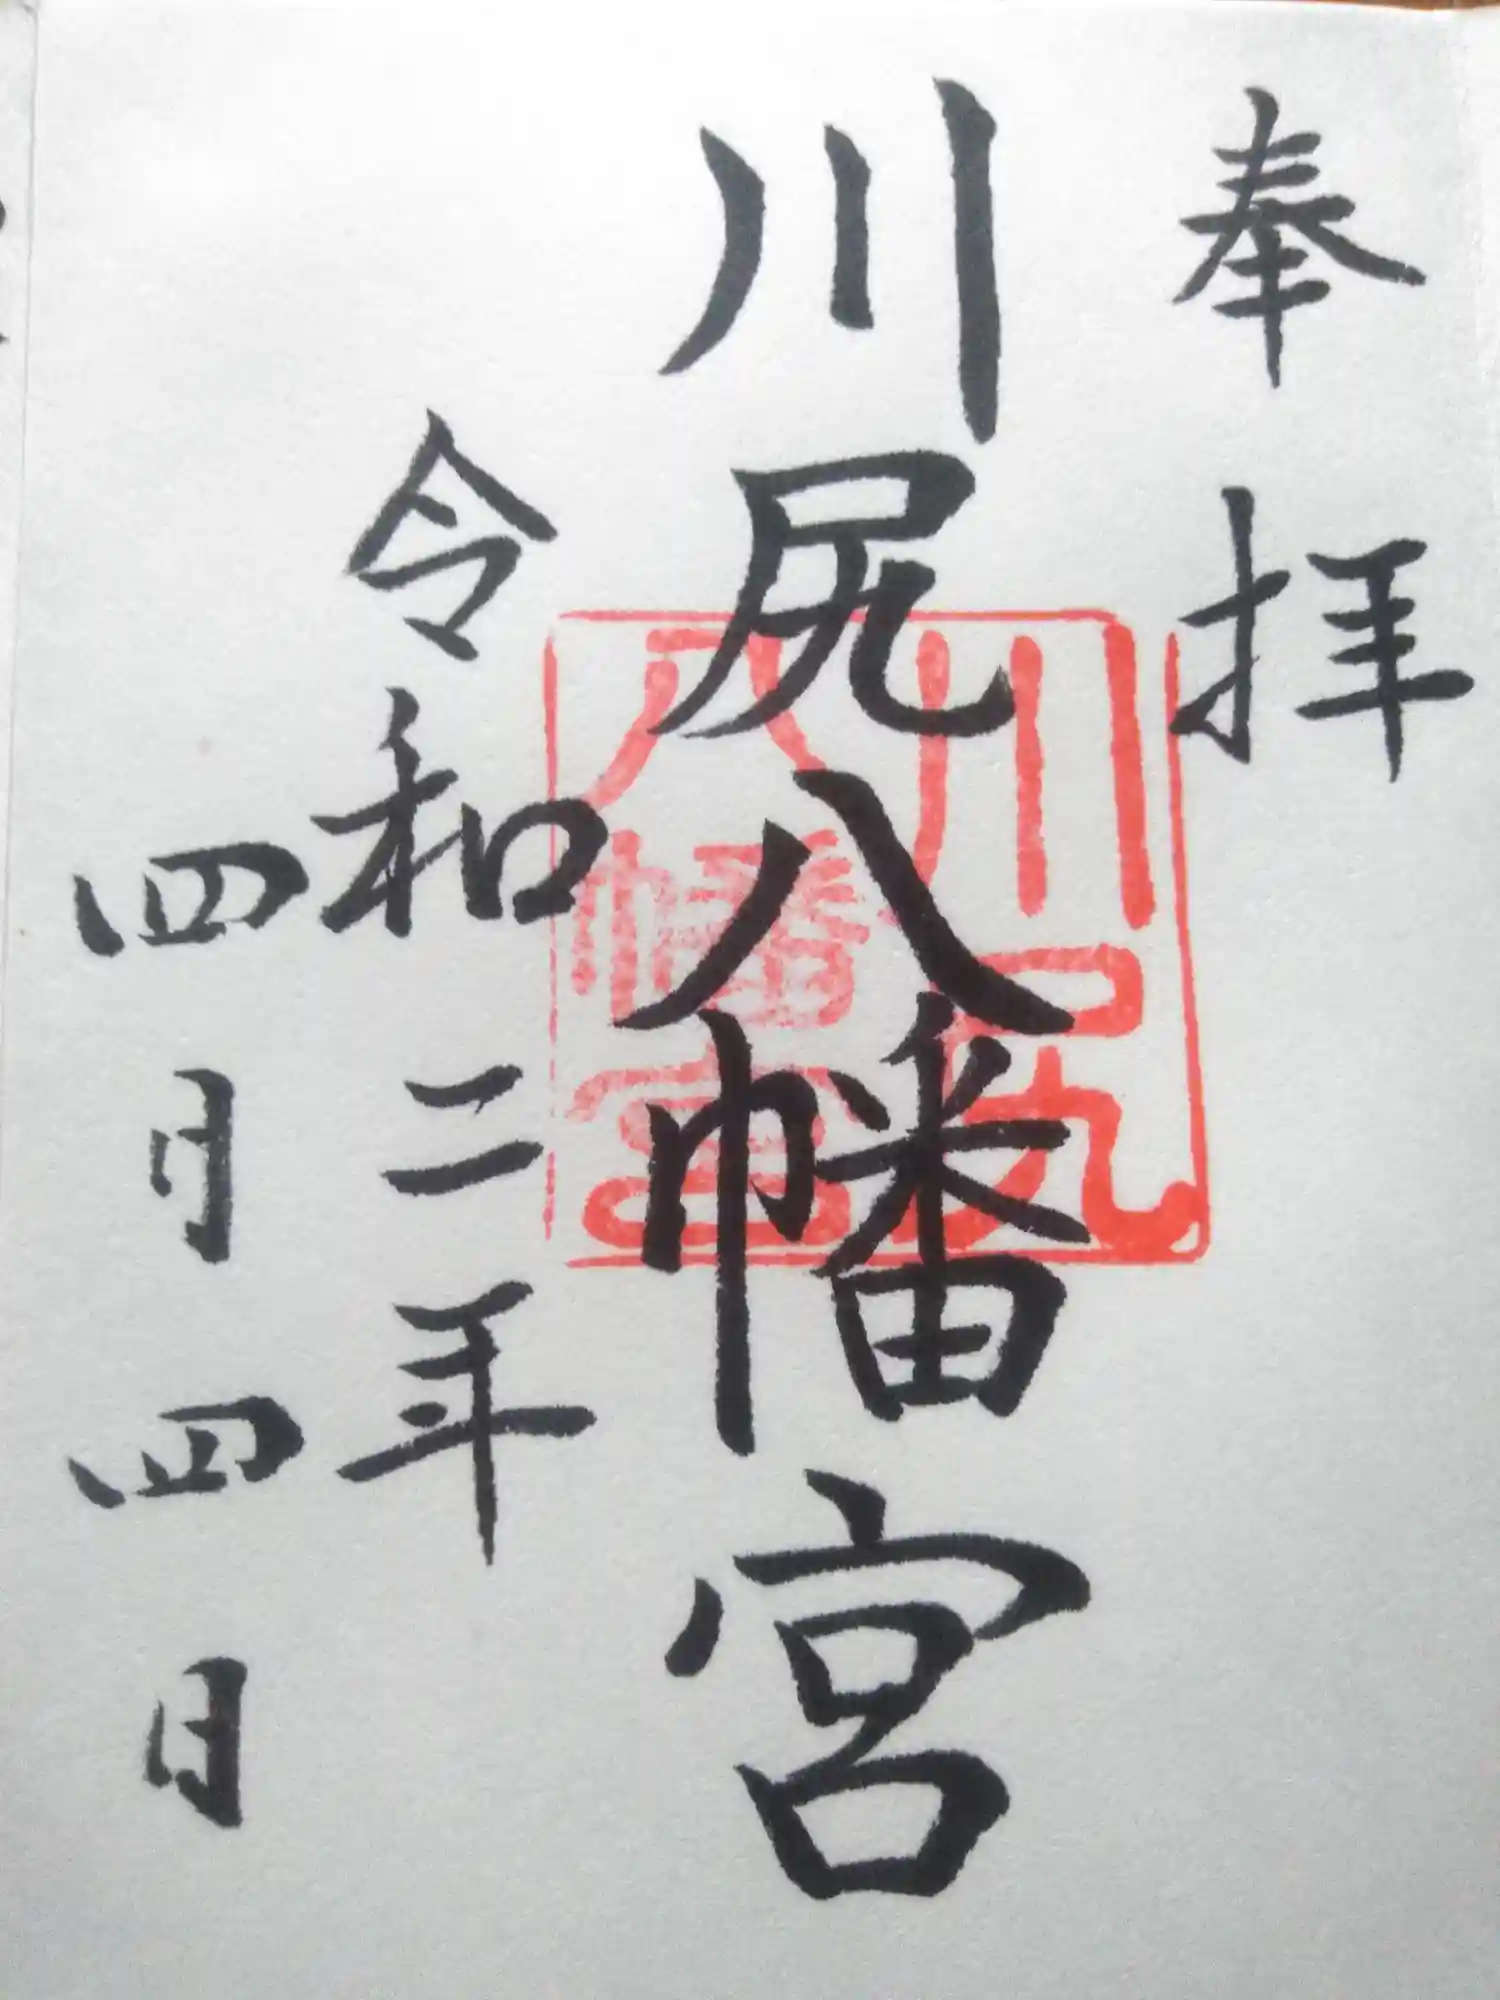 奉拝
川尻八幡宮
川尻
八幡宮
令和二年
四月四日